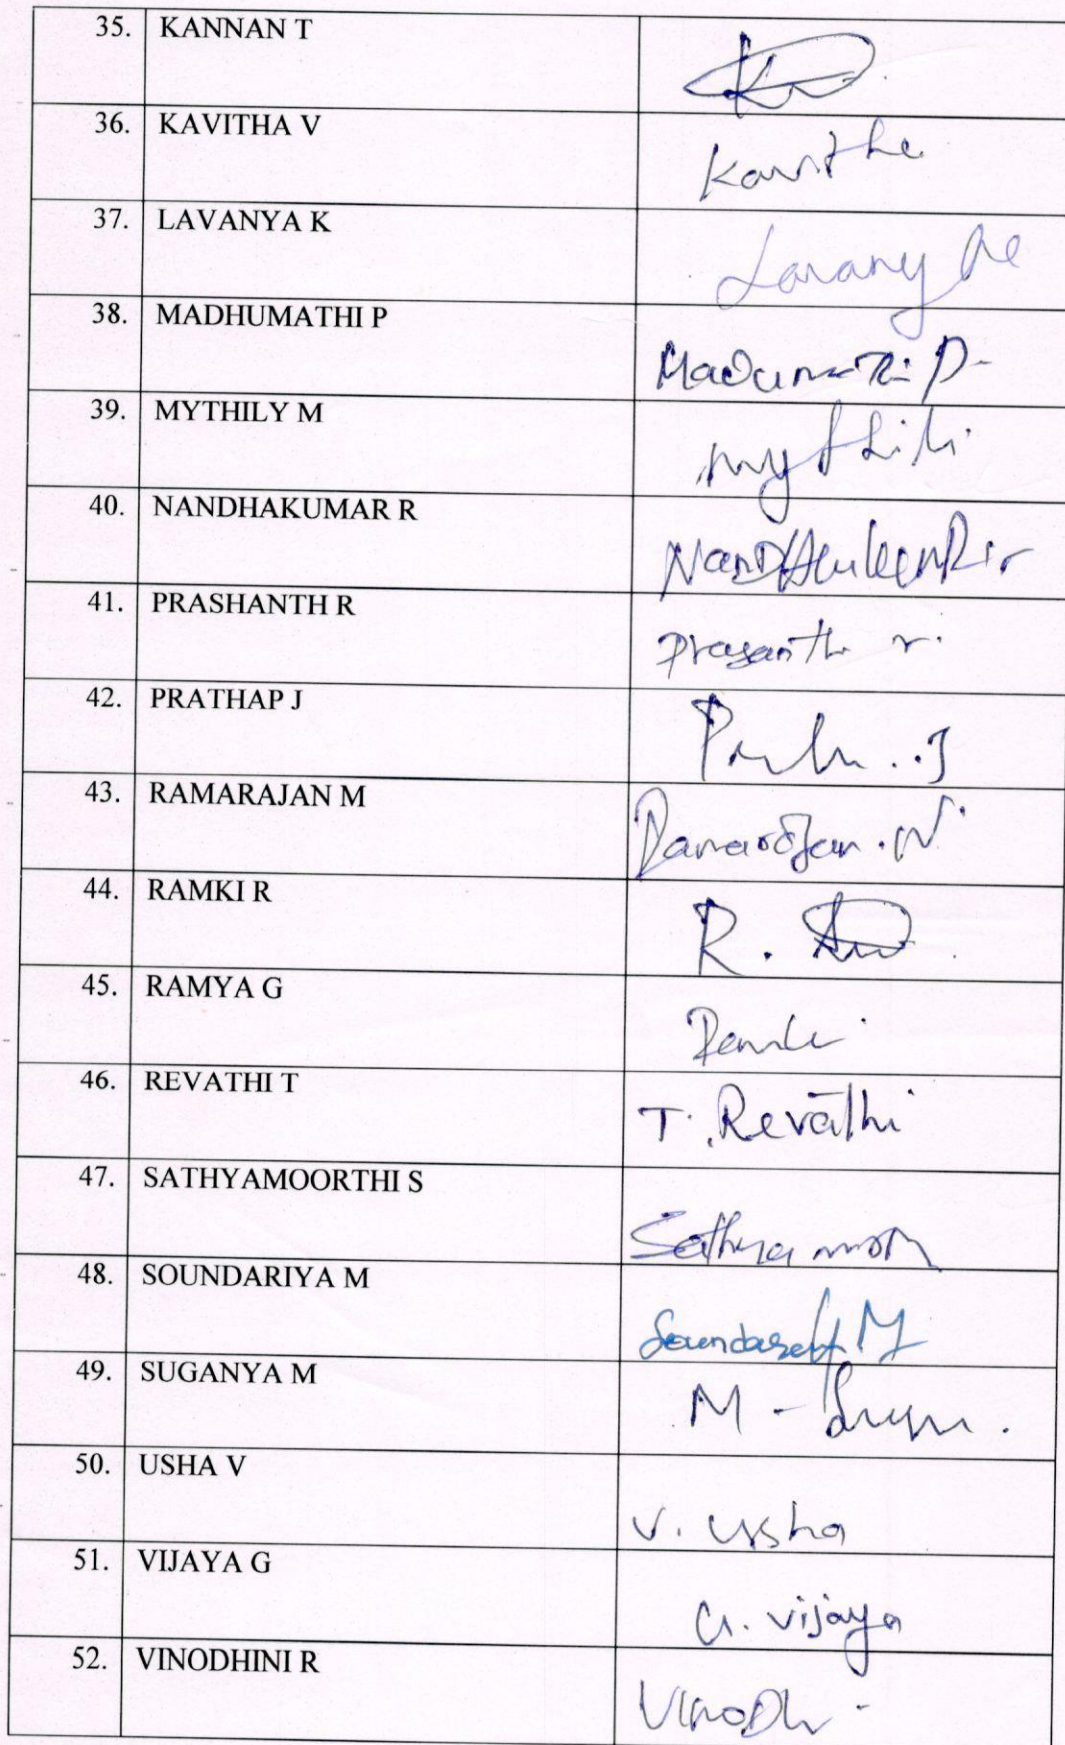 35. KANNAN T
36. KAVITHA V Kavitha
37. LAVANYA K Lavany
38. MADHUMATHI P Madumathi P
39. MYTHILY M mythili
40. NANDHAKUMAR R
41. PRASHANTH R Prasanth r.
42. PRATHAP J
43. RAMARAJAN M
44. RAMKI R R.
45. RAMYA G
46. REVATHI T T. Revathi
47. SATHYAMOORTHI S
48. SOUNDARIYA M
49. SUGANYA M M -
50. USHA V V. Usha
51. VIJAYA G G. Vijaya
52. VINODHINI R Vinodh